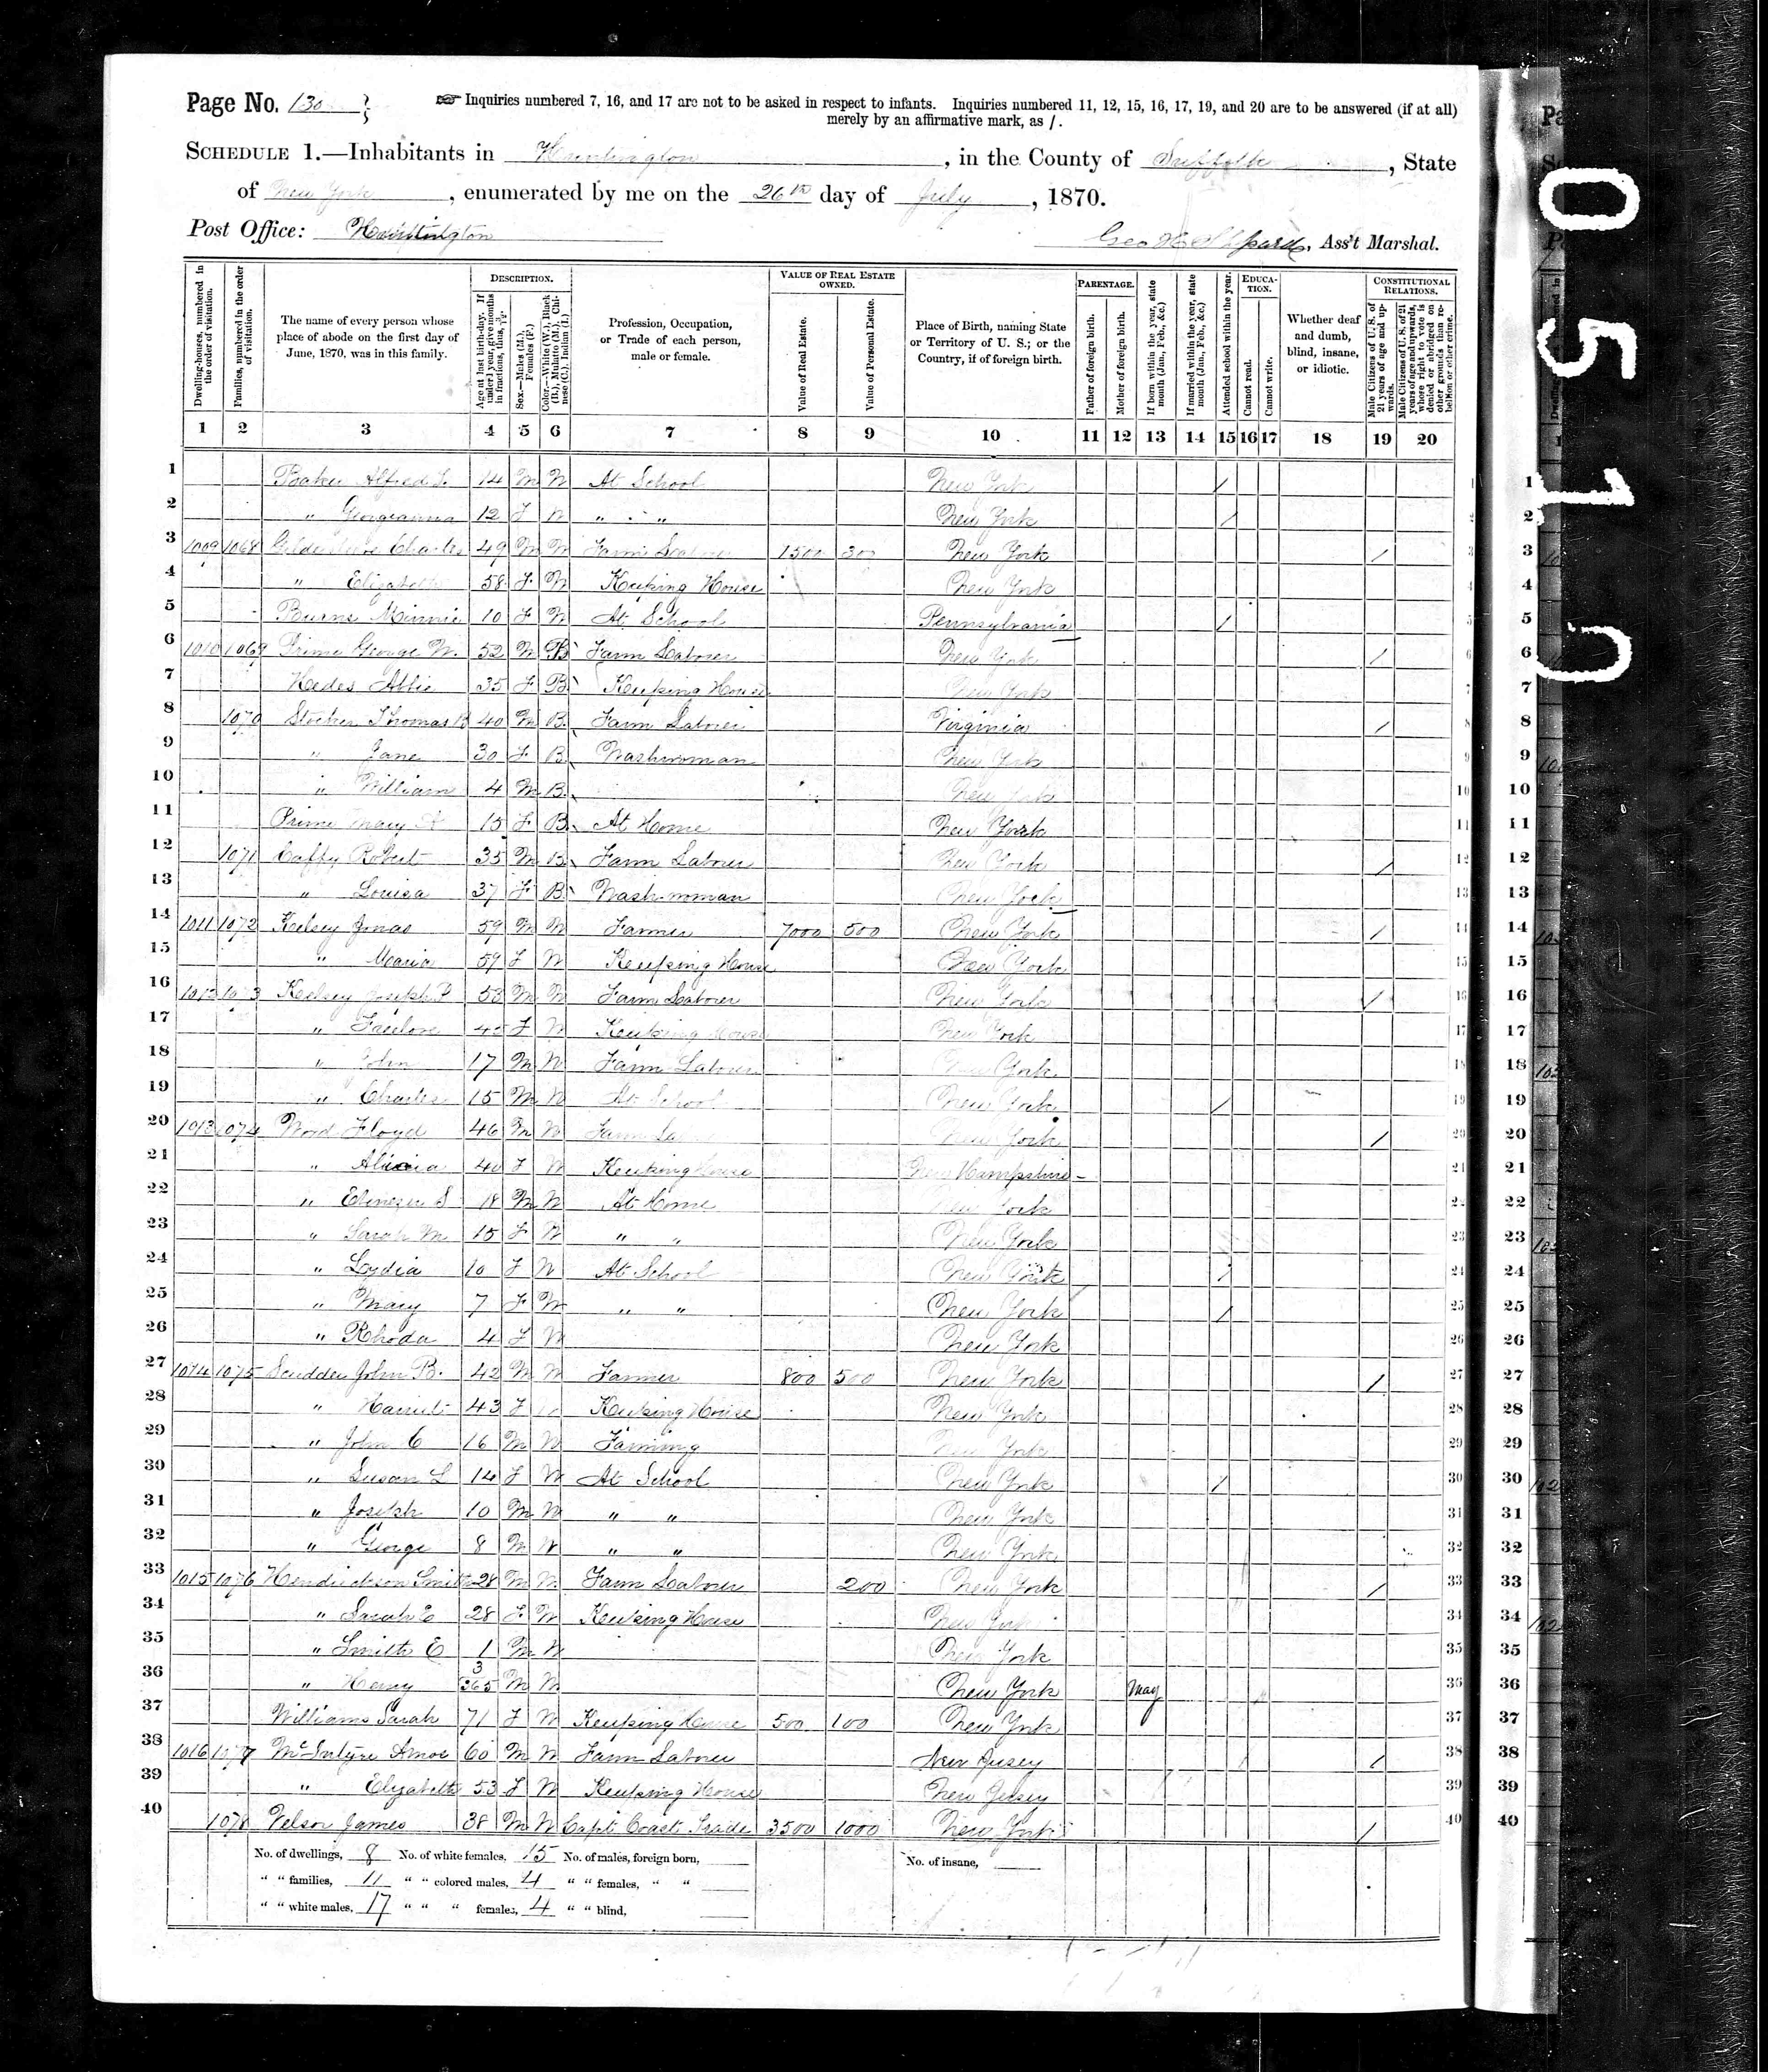 Page No. 130
☞ Inquiries numbered 7, 16, and 17 are not to be asked in respect to infants. Inquiries numbered 11, 12, 15, 16, 17, 19, and 20 are to be answered (if at all)
merely by an affirmative mark, as /.
SCHEDULE 1.—Inhabitants in Huntington, in the County of Suffolk, State
of New York, enumerated by me on the 26th day of July, 1870.
Post Office: Huntington
Geo H Shepard, Ass't Marshal.
Dwelling-houses, numbered in the order of visitation.
Families, numbered in the order of visitation.
The name of every person whose place of abode on the first day of June, 1870, was in this family.
DESCRIPTION.
Age at last birth-day. If under 1 year, give months in fractions, thus, 3/12.
Sex.—Males (M.), Females (F.)
Color.—White (W.), Black (B.), Mulatto (M.), Chinese (C.), Indian (I.)
Profession, Occupation, or Trade of each person, male or female.
VALUE OF REAL ESTATE OWNED.
Value of Real Estate.
Value of Personal Estate.
Place of Birth, naming State or Territory of U. S.; or the Country, if of foreign birth.
PARENTAGE.
Father of foreign birth.
Mother of foreign birth.
If born within the year, state month (Jan., Feb., &c.)
If married within the year, state month (Jan., Feb., &c.)
Attended school within the year.
EDUCATION.
Cannot read.
Cannot write.
Whether deaf and dumb, blind, insane, or idiotic.
CONSTITUTIONAL RELATIONS.
Male Citizens of U. S. of 21 years of age and upwards.
Male Citizens of U. S. of 21 years of age and upwards, where right to vote is denied or abridged on other grounds than rebellion or other crime.
1 2 3 4 5 6 7 8 9 10 11 12 13 14 15 16 17 18 19 20
1 Baker Alfred 14 M W At School New York / 1
2 " Georgeanna 12 F W " " New York / 2
3 1009 1068 Charles 49 M W Farm Laborer 1500 300 New York / 3
4 " Elizabeth 58 F W Keeping House New York 4
5 Burns Minnie 10 F W At School Pennsylvania / 5
6 1010 1069 Prime George W. 52 M B Farm Laborer New York / 6
7 Hedes Abbie 35 F B Keeping House New York 7
8 1070 Thomas B 40 M B Farm Laborer Virginia / 8
9 " Jane 30 F B Washwoman New York 9
10 " William 4 M B New York 10
11 Prime Mary A 15 F B At Home New York 11
12 1071 Caffy Robert 35 M B Farm Laborer New York / 12
13 " Louisa 37 F B Washwoman New York 13
14 1011 1072 Kelsey Jonas 59 M W Farmer 7000 500 New York / 14
15 " Maria 59 F W Keeping House New York 15
16 1012 1073 Kelsey Joseph P 53 M W Farm Laborer New York / 16
17 " Freelove 45 F W Keeping House New York 17
18 " John 17 M W Farm Laborer New York 18
19 " Charles 15 M W At School New York / 19
20 1013 1074 Floyd 46 M W Farm New York / 20
21 " 40 F W Keeping House New Hampshire 21
22 " Ebenezer S 18 M W At Home New York 22
23 " Sarah M 15 F W " " New York 23
24 " Lydia 10 F W At School New York / 24
25 " Mary 7 F W " " New York / 25
26 " Rhoda 4 F W New York 26
27 1014 1075 Scudder John B. 42 M W Farmer 800 500 New York / 27
28 " Harriet 43 F W Keeping House New York 28
29 " John C 16 M W Farming New York 29
30 " Susan L 14 F W At School New York / 30
31 " Joseph 10 M W " " New York 31
32 " George 8 M W " " New York 32
33 1015 1076 Hendrickson Smith 28 M W Farm Laborer 200 New York / 33
34 " Sarah E 28 F W Keeping House New York 34
35 " Smith E 1 M W New York 35
36 " Henry 3/365 M W New York May 36
37 Williams Sarah 71 F W Keeping House 500 100 New York 37
38 1016 1077 McIntyre Amos 60 M W Farm Laborer New Jersey / 38
39 " Elizabeth 53 F W Keeping House New Jersey 39
40 1078 Velsor James 38 M W Capt Coast Trade 3500 1000 New York / 40
No. of dwellings, 8 No. of white females, 15 No. of males, foreign born, No. of insane,
" " families, 11 " " colored males, 4 " " females, " "
" " white males, 17 " " " females, 4 " " blind,
0510